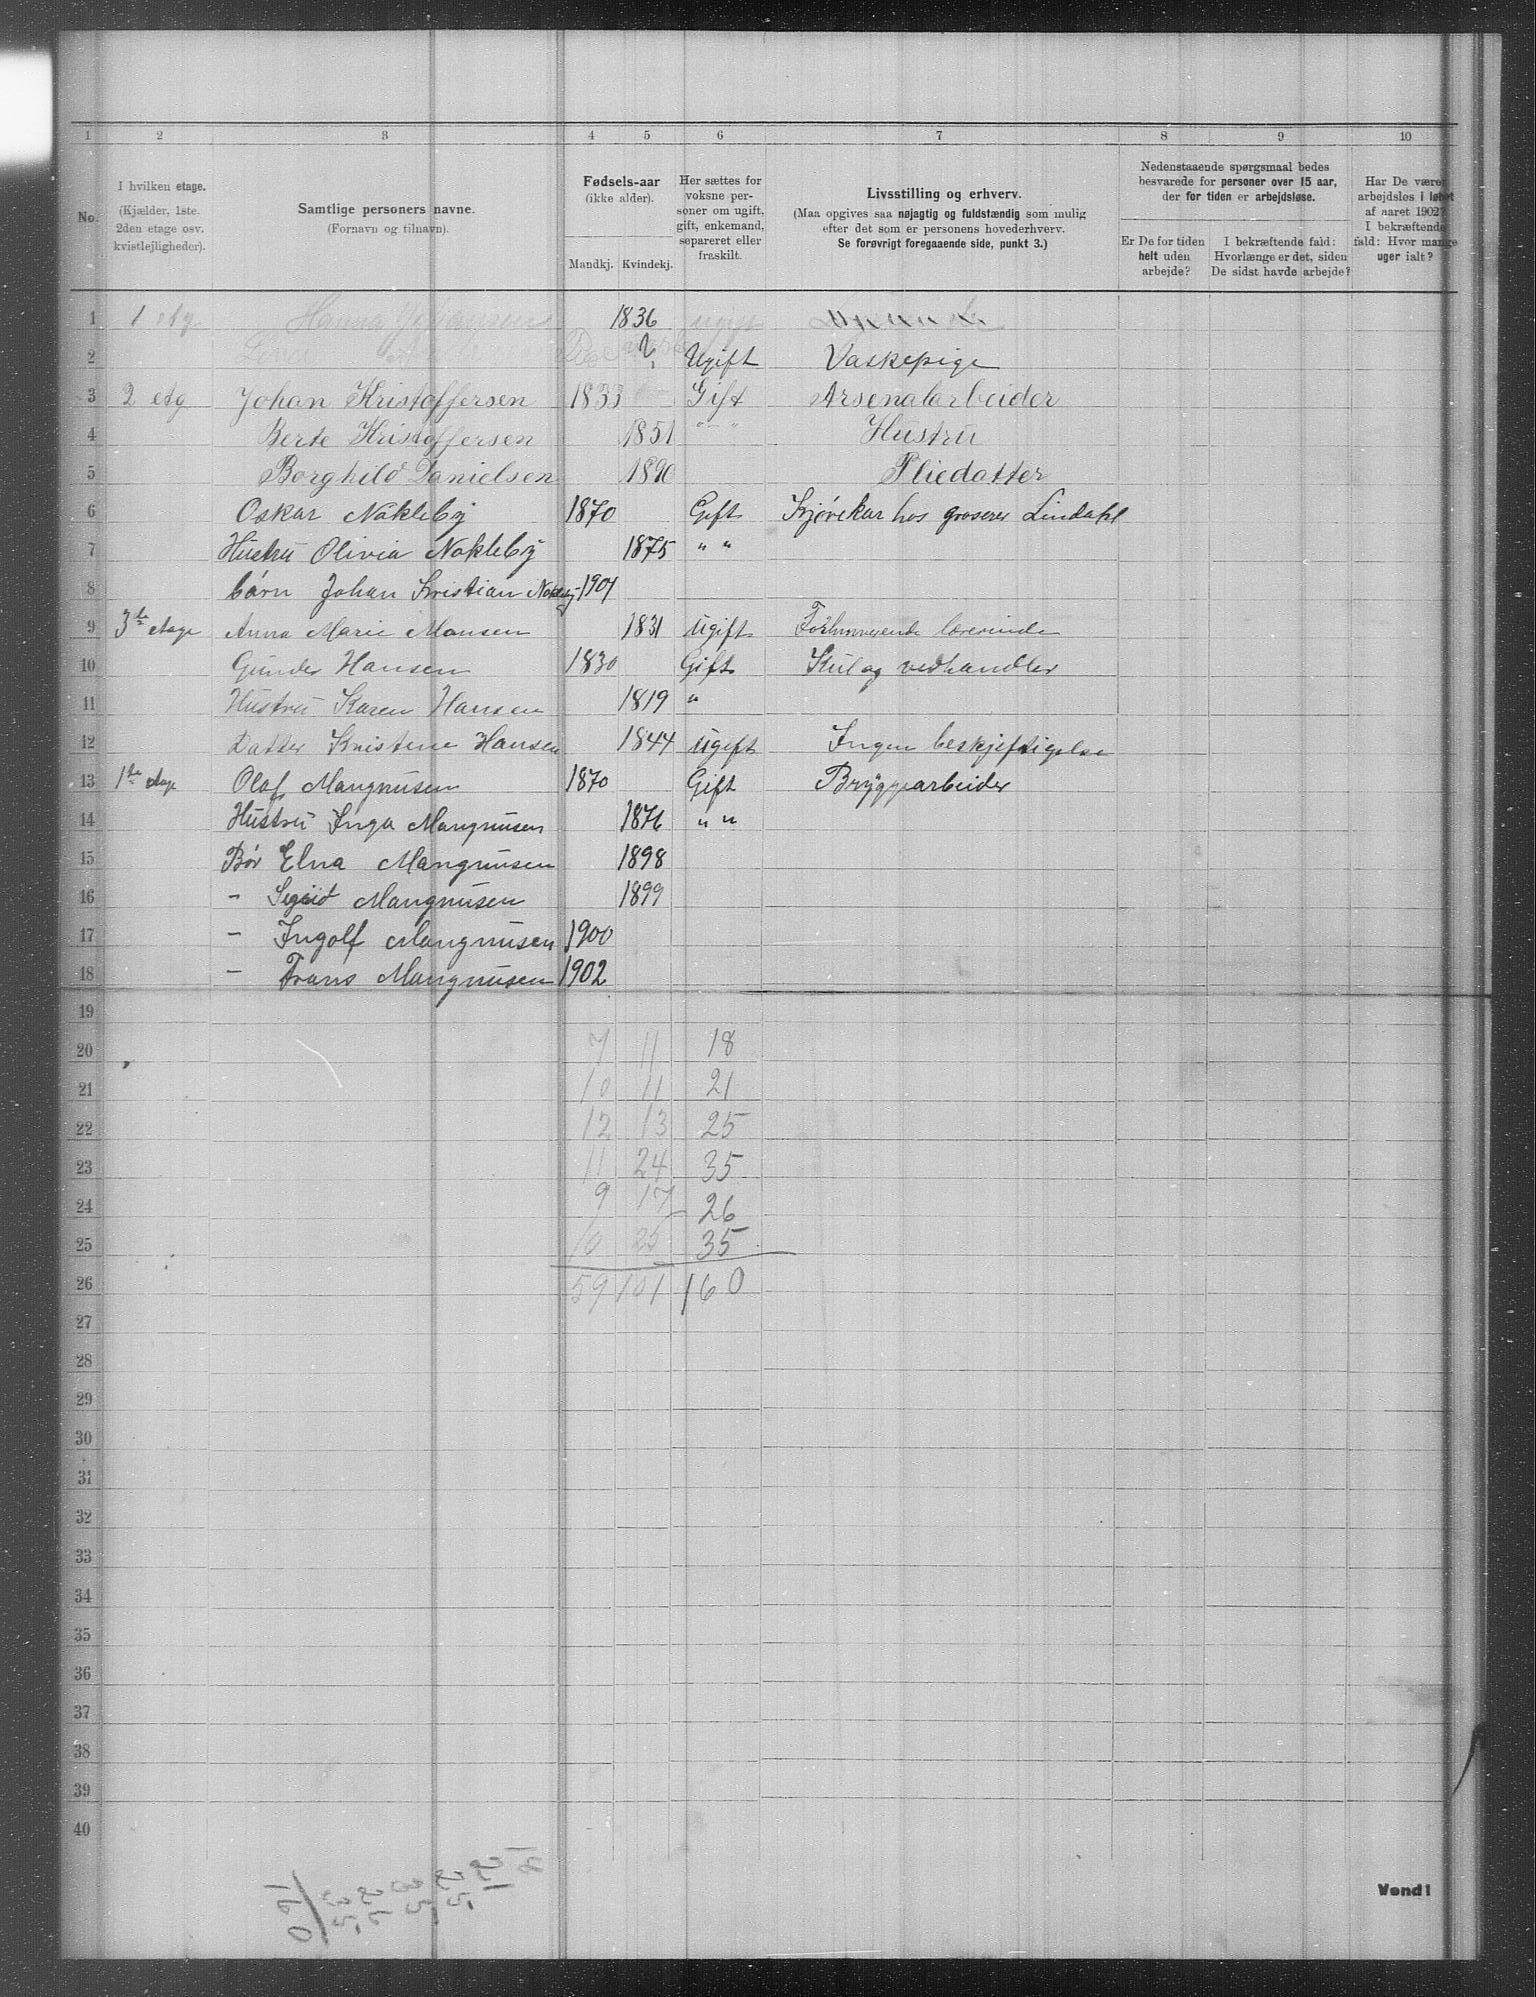 1 2 3 4 5 6 7 8 9 10
No.
I hvilken etage.
(Kjælder, 1ste.
2den etage osv.
kvistlejligheder).
Samtlige personers navne.
(Fornavn og tilnavn).
Fødsels-aar
(ikke alder).
Mandkj. Kvindekj.
Her sættes for
voksne per-
soner om ugift,
gift, enkemand,
separeret eller
fraskilt.
Livsstilling og erhverv.
(Maa opgives saa nøjagtig og fuldstændig som mulig
efter det som er personens hovederhverv.
Se forøvrigt foregaaende side, punkt 3.)
Nedenstaaende spørgsmaal bedes
besvarede for personer over 15 aar,
der for tiden er arbejdsløse.
Er De for tiden
helt uden
arbejde?
I bekræftende fald:
Hvorlænge er det, siden
De sidst havde arbejde?
Har De været
arbejdsløs i løbet
af aaret 1902?
I bekræftende
fald: Hvor mange
uger ialt?
1 1 etg Hanna Johansen 1836 ugift
2 ? Ugift Vaskepige
3 2 etg Johan Kristoffersen 1833 Gift Arsenalarbeider
4 Berte Kristoffersen 1851 " - " Hustru
5 Borghild Danielsen 1890 Pliedatter
6 Oskar Nakleby 1870 Gift Kjørekar hos groserer Lindahl
7 Hustru Olivia Nokleby 1875 " "
8 børn Johan Kristian Nokleby 1901
9 3de etage Anna Marie Monsen 1831 Ugift Forhenværende lærerinde
10 Gunder Hansen 1830 Gift Kul og vedhandler
11 Hustru Karen Hansen 1819 "
12 Datter Kristine Hansen 1844 ugift Ingen beskjeftigelse
13 1ste etage Olaf Mangnusen 1870 Gift Bryggearbeider
14 Hustru Inga Mangnusen 1876 " "
15 Bør Elna Mangnusen 1898
16 - Sigrid Mangnusen 1899
17 - Ingolf Mangnusen 1900
18 - Frans Mangnusen 1902
19
20 7 11 18
21 10 11 21
22 12 13 25
23 11 24 35
24 9 17 26
25 10 25 35
26 59 101 160
27
28
29
30
31
32
33
34
35
36
37
38
39
40
Vend!